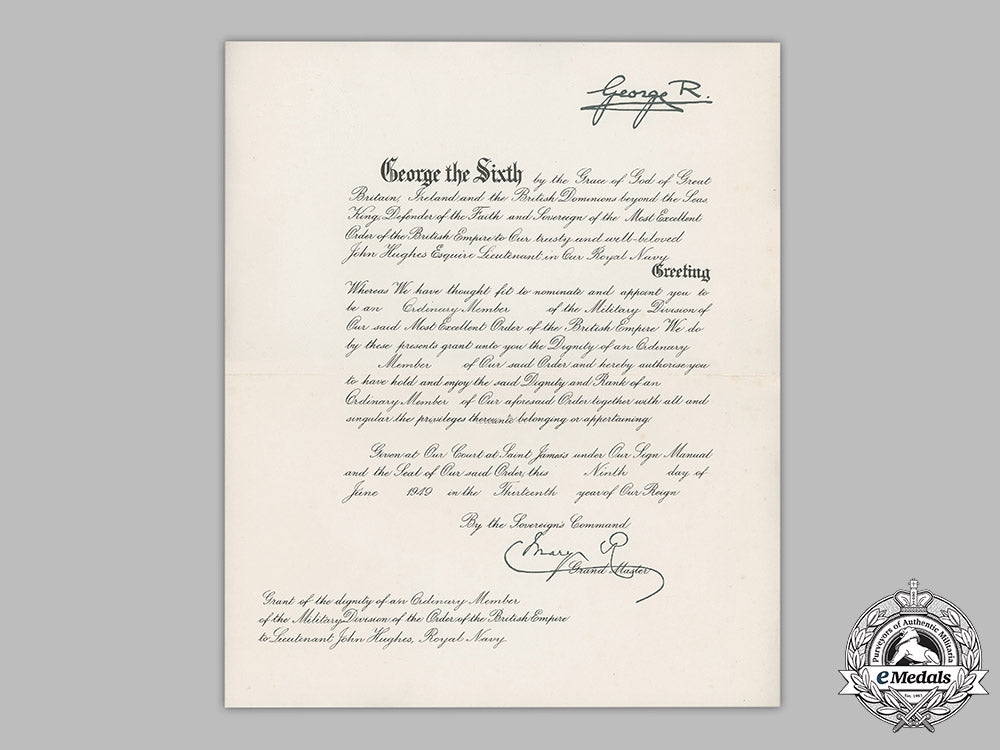 George R.
George the Sixth by the Grace of God of Great
Britain, Ireland and the British Dominions beyond the Seas,
King, Defender of the Faith and Sovereign of the Most Excellent
Order of the British Empire to Our trusty and well-beloved
John Hughes Esquire Lieutenant in Our Royal Navy
Greeting
Whereas We have thought fit to nominate and appoint you to
be an Ordinary Member of the Military Division of
Our said Most Excellent Order of the British Empire We do
by these presents grant unto you the Dignity of an Ordinary
Member of Our said Order and hereby authorise you
to have hold and enjoy the said Dignity and Rank of an
Ordinary Member of Our aforesaid Order together with all and
singular the privileges thereunto belonging or appertaining.
Given at Our Court at Saint James's under Our Sign Manual
and the Seal of Our said Order, this Ninth day of
June 1949 in the Thirteenth year of Our Reign
By the Sovereign's Command
Mary R
Grand Master
Grant of the dignity of an Ordinary Member
of the Military Division of the Order of the British Empire
to Lieutenant John Hughes, Royal Navy.
Purveyors of Authentic Militaria
eMedals
Est. 1967